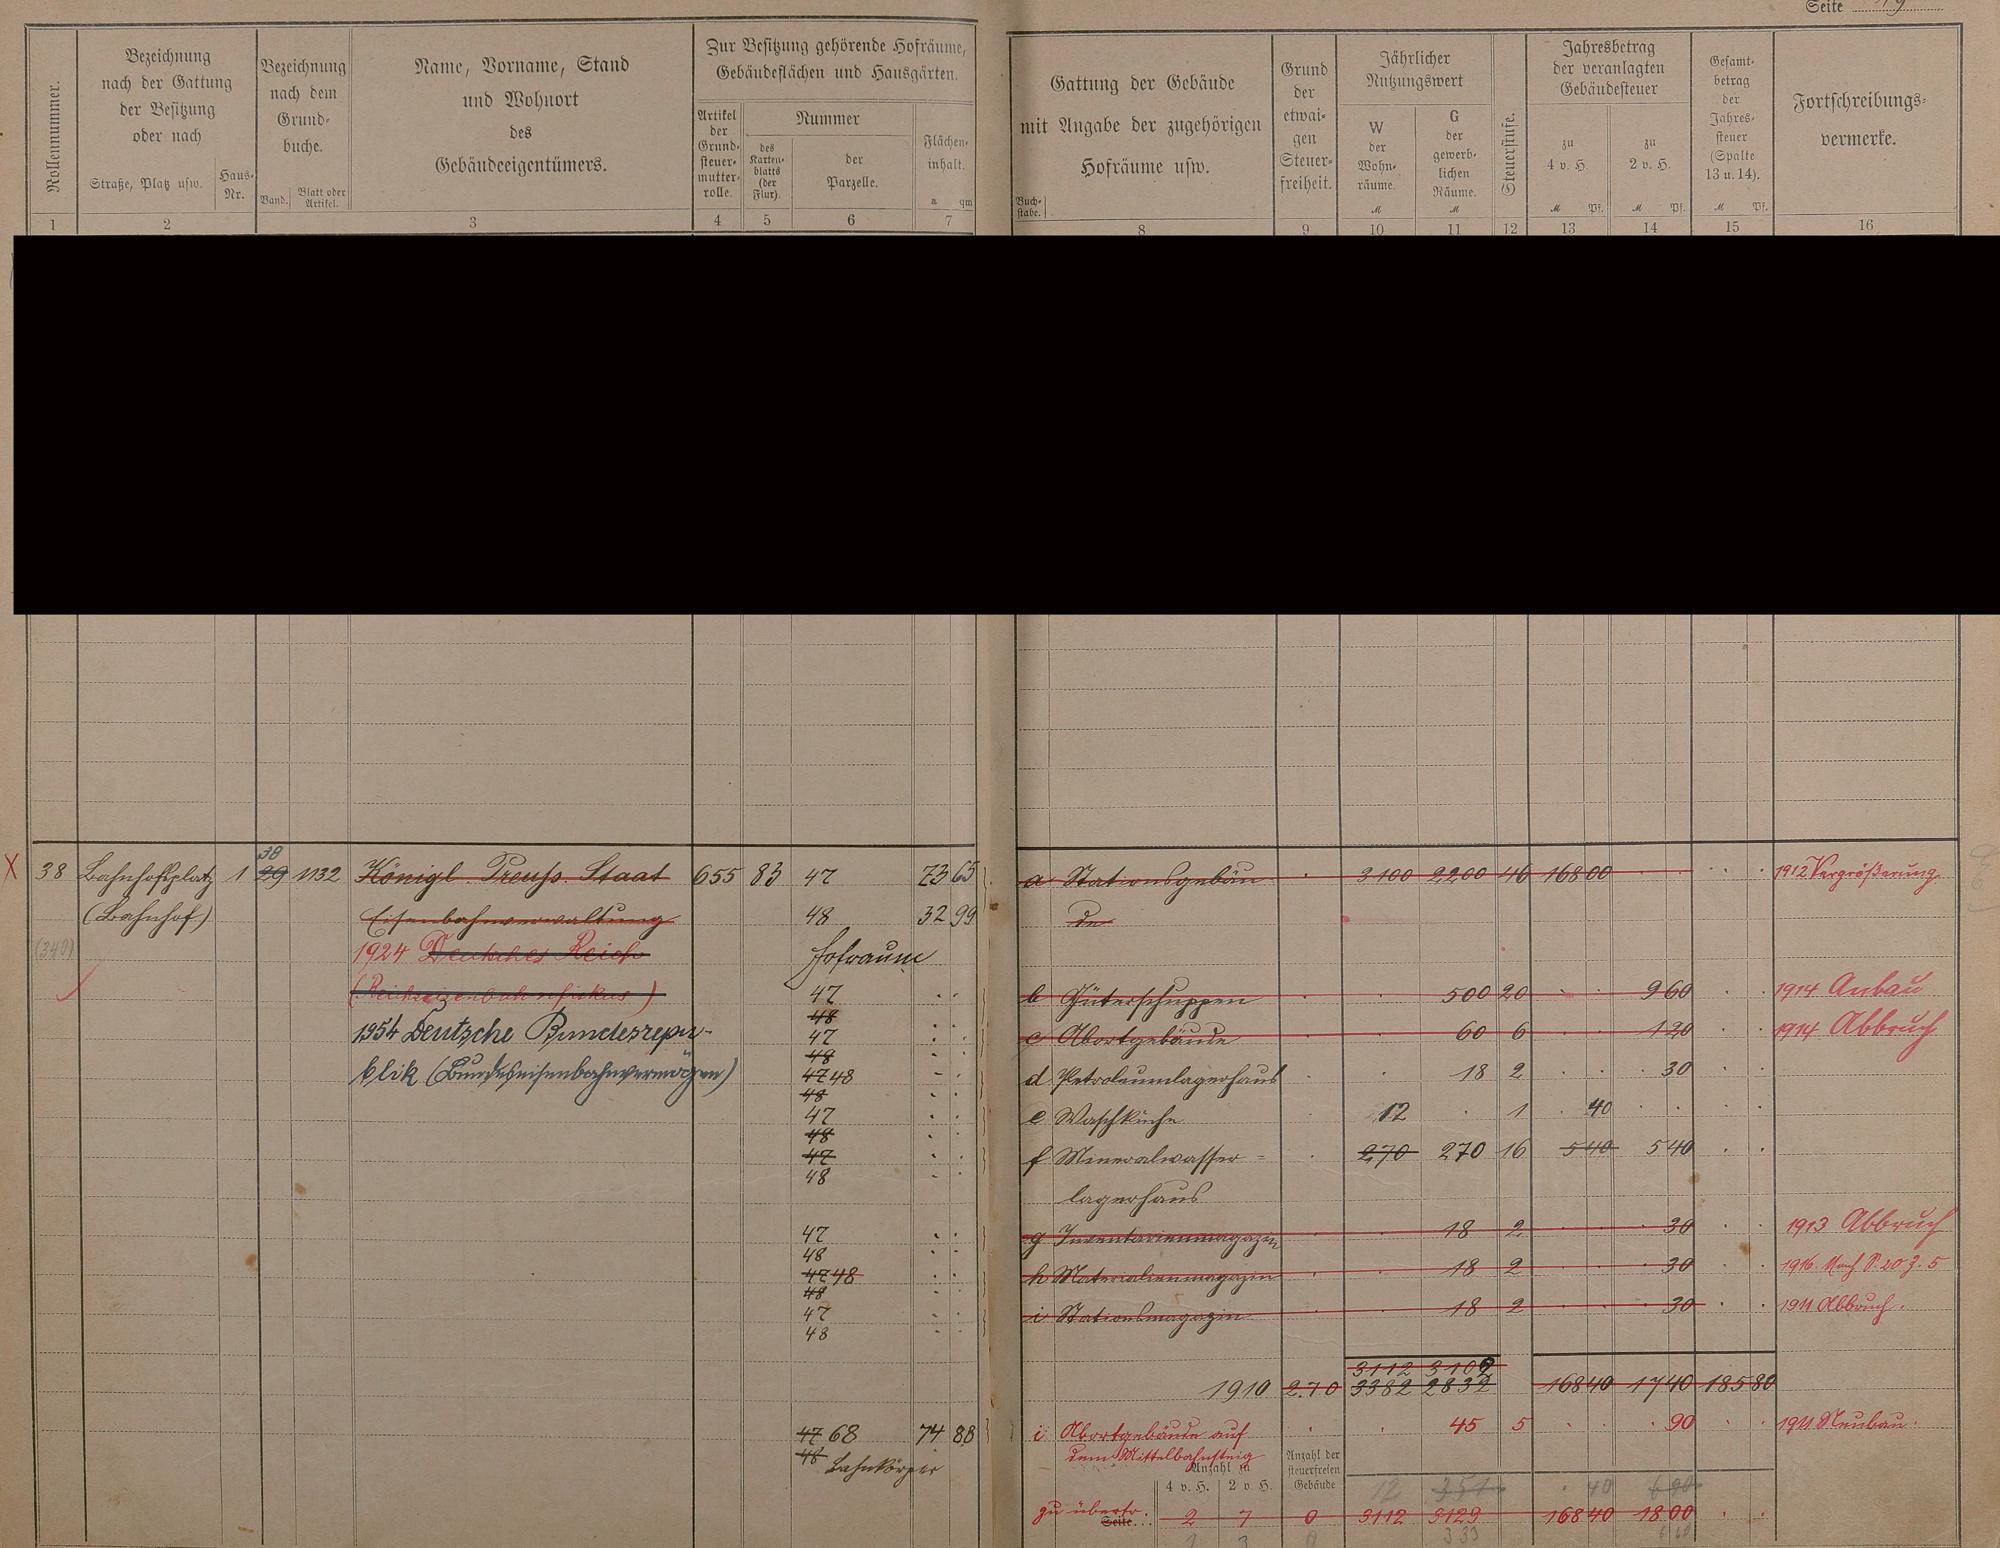 Seite 19
Rollennummer.
Bezeichnung
nach der Gattung
der Besitzung
oder nach
Straße, Platz usw.
Haus-
Nr.
Bezeichnung
nach dem
Grund-
buche.
Band.
Blatt oder
Artikel.
Name, Vorname, Stand
und Wohnort
des
Gebäudeeigentümers.
Zur Besitzung gehörende Hofräume,
Gebäudeflächen und Hausgärten.
Artikel
der
Grund-
steuer-
mutter-
rolle.
Nummer
des
Karten-
blatts
(der
Flur).
der
Parzelle.
Flächen-
inhalt.
a qm
Gattung der Gebäude
mit Angabe der zugehörigen
Hofräume usw.
Buch-
stabe.
Grund
der
etwai-
gen
Steuer-
freiheit.
Jährlicher
Nutzungswert
W
der
Wohn-
räume.
M
G
der
gewerb-
lichen
Räume.
M
Steuerstufe.
Jahresbetrag
der veranlagten
Gebäudesteuer
zu
4 v. H.
M Pf.
zu
2 v. H.
M Pf.
Gesamt-
betrag
der
Jahres-
steuer
(Spalte
13 u. 14).
M Pf.
Fortschreibungs-
vermerke.
1 2 3 4 5 6 7 8 9 10 11 12 13 14 15 16
38
X 38 Bahnhofsplatz 1 29 1132 Königl. Preuß. Staat 655 83 47 73 65
(Bahnhof) Eisenbahnverwaltung 48 32 99
(340) 1924 Deutsches Reich Hofraum
(Reichseisenbahnfiskus) 47
48
1954 Deutsche Bundesrepu- 47
48
blik (Bundeseisenbahnvermögen) 47 48
48
47
48
47
48
47
48
47 48
48
47
48
47 68 74 88
48 Bahnkörper
a Stationsgebäu 3100 2200 46 168 00 1912 Vergrößerung
de
b Güterschuppen 500 20 9 60 1914 Anbau
c Abortgebäude 60 6 1 20 1914 Abbruch
d Petroleumlagerhaus 18 2 30
e Waschküche 12 1 40
f Mineralwasser- 270 270 16 5 40 5 40
lagerhaus
g Inventarienmagazin 18 2 30 1913 Abbruch
h Materialienmagazin 18 2 30 1916. Nach S. 20 Z. 5
i Stationsmagazin 18 2 30 1911 Abbruch.
3112 3102
1910 2.7.0 3382 2832 168 40 17 40 185 80
i Abortgebäude auf 45 5 90 1911 Neubau.
dem Mittelbahnsteig
Anzahl zu
4 v. H. 2 v. H.
Anzahl der
steuerfreien
Gebäude
12 351 40 6 90
zu übertr. Seite 2 7 0 3112 3129 168 40 18 00
1 3 0 333 6 60